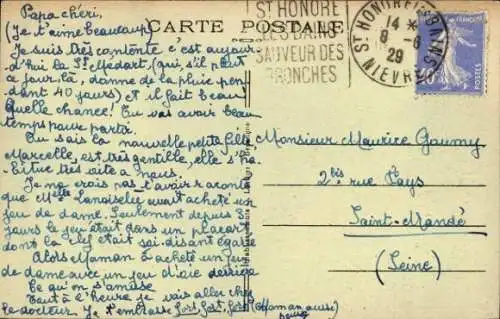 Papa chéri,
(Je t'aime beaucoup)
Je suis très contente c'est aujour-
d'hui la St Médart (qui s'il pleut
ce jour là, donne de la pluie pen
dant 40 jours) et il fait beau
Quelle chance! Tu vas avoir beau
temps pour partir.
Tu sais la nouvelle petite fille,
Marcelle, est très gentille, elle s'ha-
bitue très vite à nous.
Je ne crois pas t'avoir raconté
que Melle avait acheté un
jeu de dame. Seulement depuis
jours le jeu était dans un placard
dont la clef était soi disant égarée
Alors Maman a acheté un jeu
de dame avec un jeu d'oie derrière
Ce qu'on s'amuse
Tout à l'heure je vais aller chez
le docteur. Je t'embrasse fort, fort, fort (Maman aussi)
CARTE POSTALE
ST HONORÉ
LES BAINS
SAUVEUR DES
BRONCHES
ST HONORÉ LES BAINS
14
8 - 6
29
NIEVRE
POSTES
Monsieur Maurice Gaumy
2bis rue Pays
Saint-Mandé
(Seine)